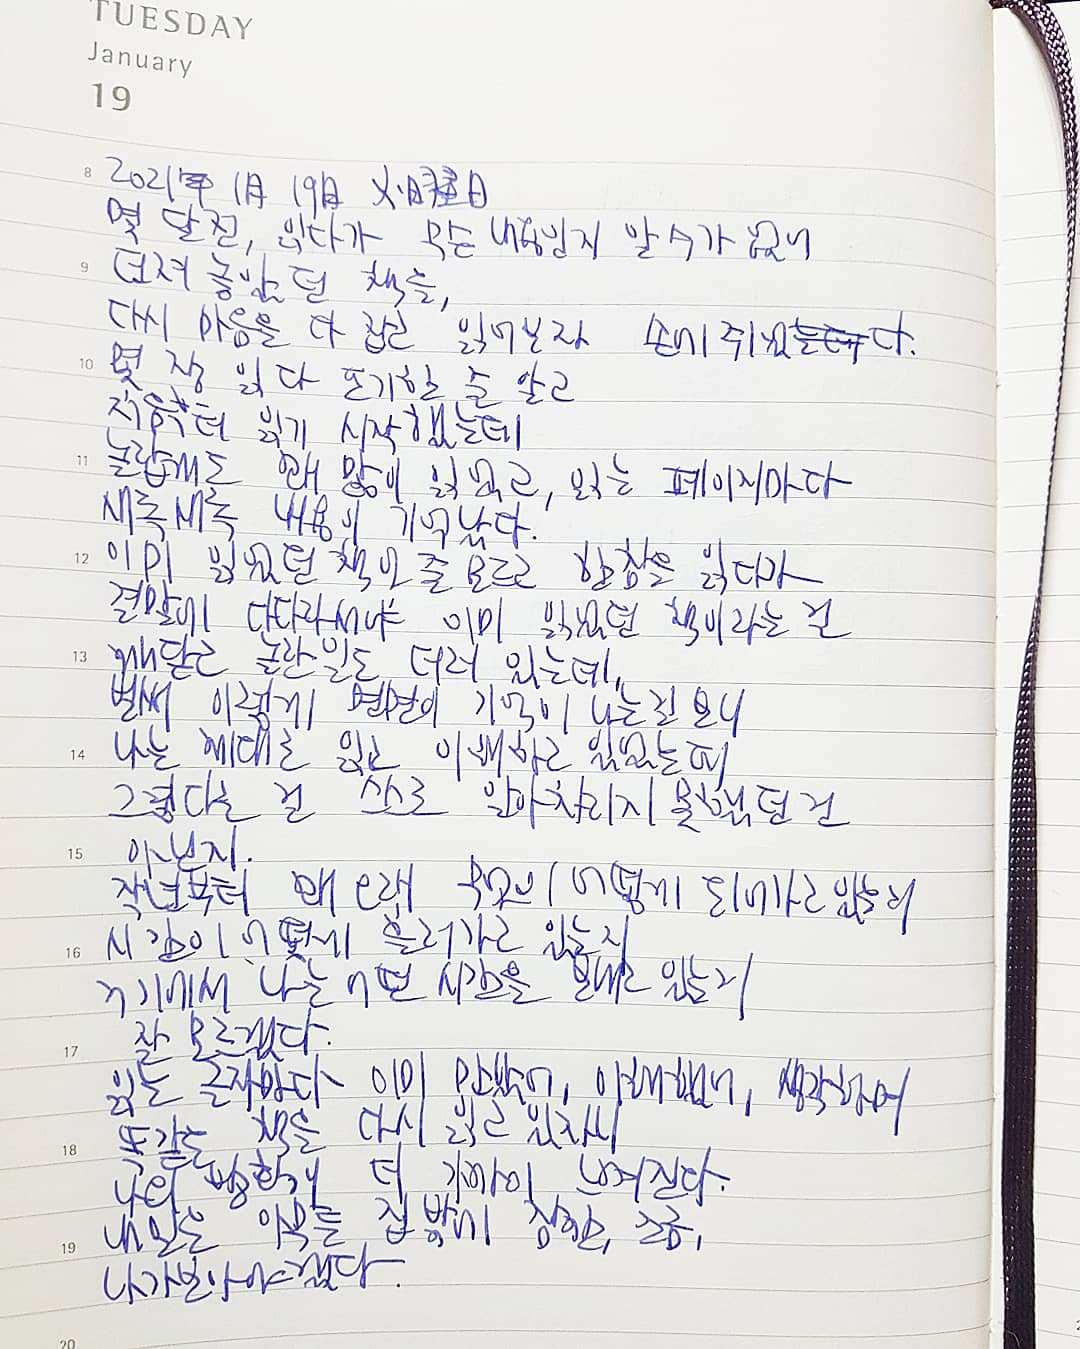 TUESDAY
January
19
8 2021年 1月 19日 火曜日
몇 달 전, 읽다가 무슨 내용인지 알 수가 없어
9 던져 놓았던 책을,
다시 마음을 다 잡고 읽어보자 손에 쥐었다.
10 몇 장 읽다 포기할 줄 알고
처음부터 읽기 시작했는데
11 놀랍게도 꽤 많이 읽었고, 읽는 페이지마다
새록새록 내용이 기억났다.
12 이미 읽었던 책인 줄 모르고 한참을 읽다가
결말에 다다라서야 이미 읽었던 책이라는 걸
13 깨닫고 놀란 일도 더러 있는데,
벌써 이렇게 면면이 기억이 나는걸 보니
14 나는 제대로 읽고 이해하고 있었는데
그렇다는 걸 스스로 알아차리지 못했던 건
15 아닌지.
작년부터 꽤 오래 무엇이 어떻게 되어가고 있는지
16 시간이 어떻게 흘러가고 있는지
거기에서 나는 어떤 시간을 보내고 있는지
잘 모르겠다.
17
읽는 글자마다 이미 만났어, 이해했어, 생각하며
18 똑같은 책을 다시 읽고 있자니
나의 더 가까이 느껴진다.
19 내일은 집 밖에 잠시만, 조금,
나가보아야겠다.
20